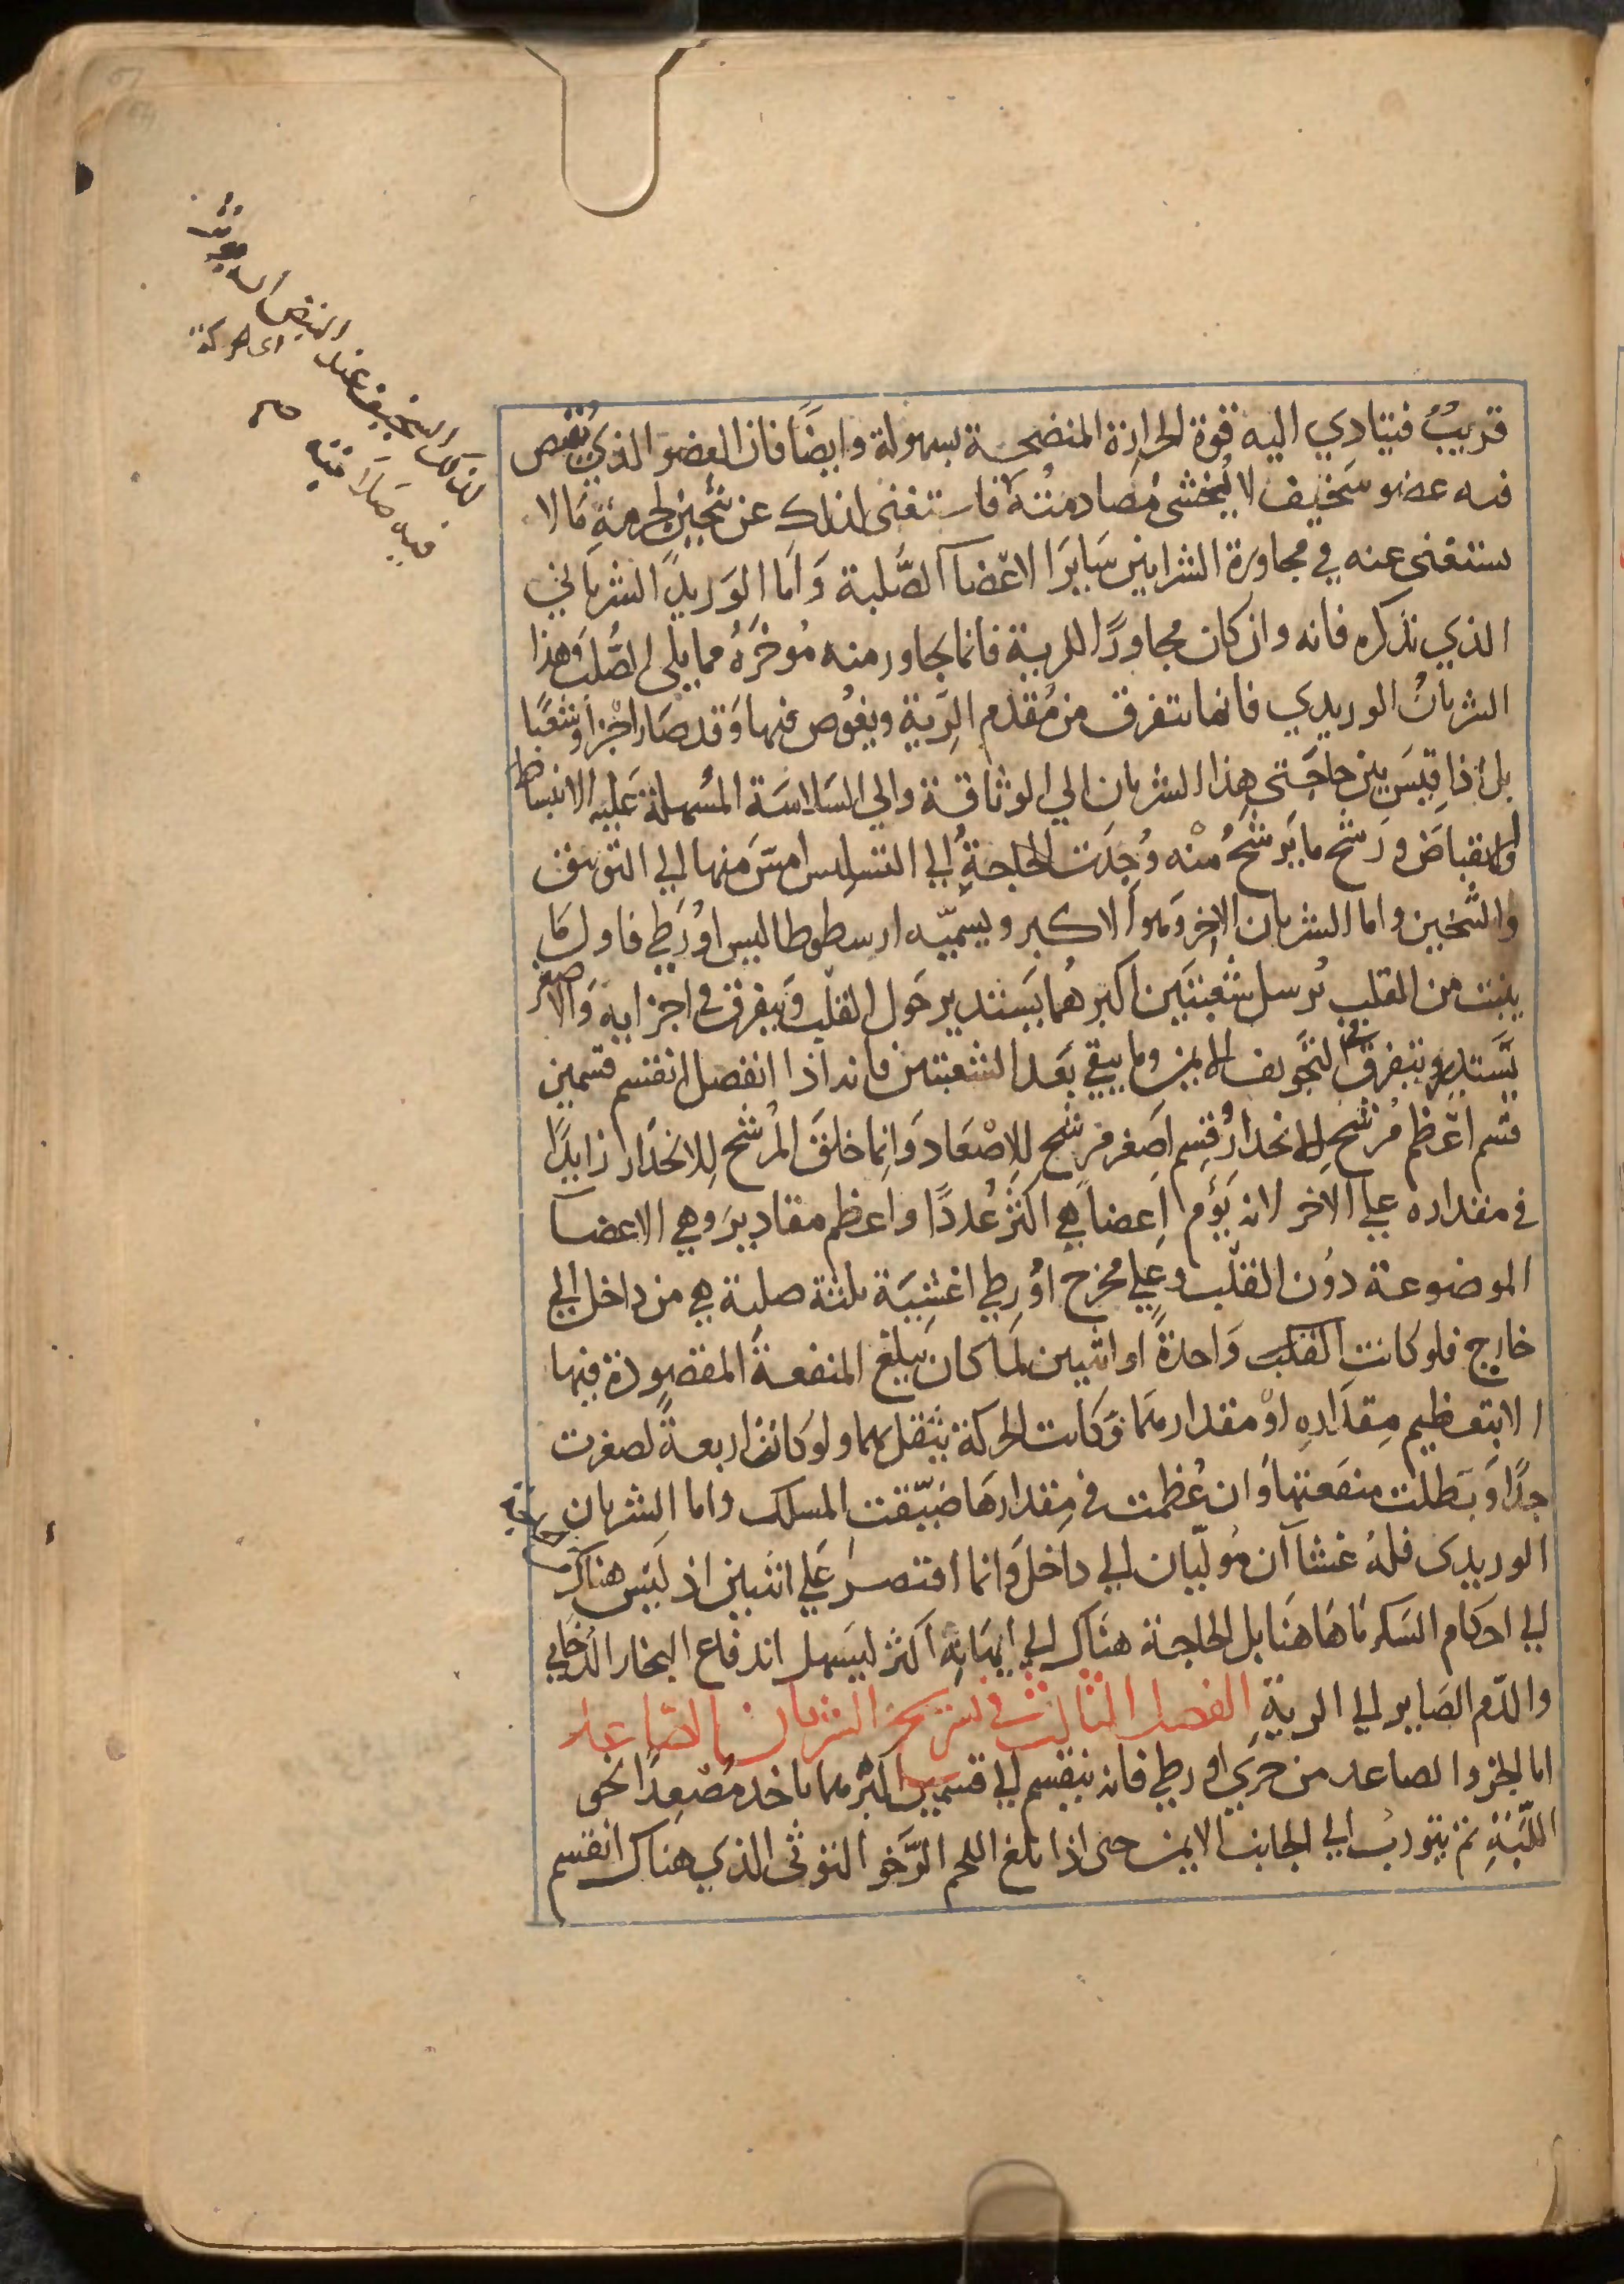 قريبٌ فيتادي اليه قوة الحرارة المنضجة بسهولة وايضًا فان العضو الذي ينبض
فيه عضو سَخيف لا يُخشَى مُصادمتُهُ فاستغنى لذلك عن تثخين لجرمهِ مَا لا
يستغنى عنه في مجاورة الشرايين سَايرَ الاعْضآ الصُّلبة وَاَما الوَريدُ الشرياني
الذي نذكره فانه وان كان مجاورًا للرية فانما يجاور منه مُوخرَهُ مما يلى الصُّلب وَهذا
الشريانُ الوريدي فانما يتفرق من مُقدَّم الرِية ويغوُص فيها وَقد صَار اجْزآ وشُعبًا
بل اذا قِيسَ بين حاجَتى هذا الشريان الي الوثاقة والي السَلاسَة المُسهلة عَليه الانبساط
والانقباضَ ورَشْح ما يَرشَحُ منْه وُجِدَت الحاجةُ الي التسليس امسَّ منها الي التوثيق
والتثخين واما الشريان الاخر وَهو الاكبر ويسمّيه ارسطوطاليس اوُرَطي فاول مَا
ينبت من القلب يُرسل شعْبتَين اكبرهُما يَستدير حَول القلْب وَيتفرق في اجزايه وَالاصغر
يَستدير ويتفرق في التجويف الايمن وما يبقى بَعد الشعبتين فانه اذا انفصل انقسم قسمين
قسم اعْظم مُرشح للانحدار وقسِم اصَغر مُرشح للاِصْعَاد وَانما خلقَ المُرشح لِلانحَدار زايدًا
في مقداره علي الاخر لانه يَؤم اعضاً هي اكثرُ عُددًا واعظم مقاديرَ وهي الاعضآ
الموضوعة دوُن القلْب وعلي مخرج اوُرطي اغشيَة ثلثة صلبة هي من داخل الي
خارج فلو كانت القلب وَاحدةً او اثنين لمَا كان يبلغ المنفعةَ المقصوُدة فيها
الا بتعظيم مِقدَاره اوْ مقدارهمَا وَكانت الحركة يثقل بهما ولو كانت اربعةً لصغرت
جدًا وَبَطلت منفعتها وَان عُظمت في مِقدارهَا ضَيّقت المسلك واما الشريان
الوريدى فلهُ غشاآن مُولّيان الي داخل وَانما اقتصِرَ عَلي اثنين اذ لَيسَ هناك
الي احكام السَكر مَا هَاهنَا بل الحاجة هنَاك الي اكثر ليَسهل اندفاع البخار الدُخاني
والدّم الصَاير الي الريةِ الفصل الثالث في تشريح الشريان الصّاعد
اما الجزو الصاعد من جزي اورطي فانه ينقسم الي قسمين اكبرهما ياخذ مُصْعِدًا نحو
اللَّبَّةِ ثم يتورب الي الجانب الايمن حتى اذا بلغ اللحم الرَّخو التوثى الذي هناك انقسم